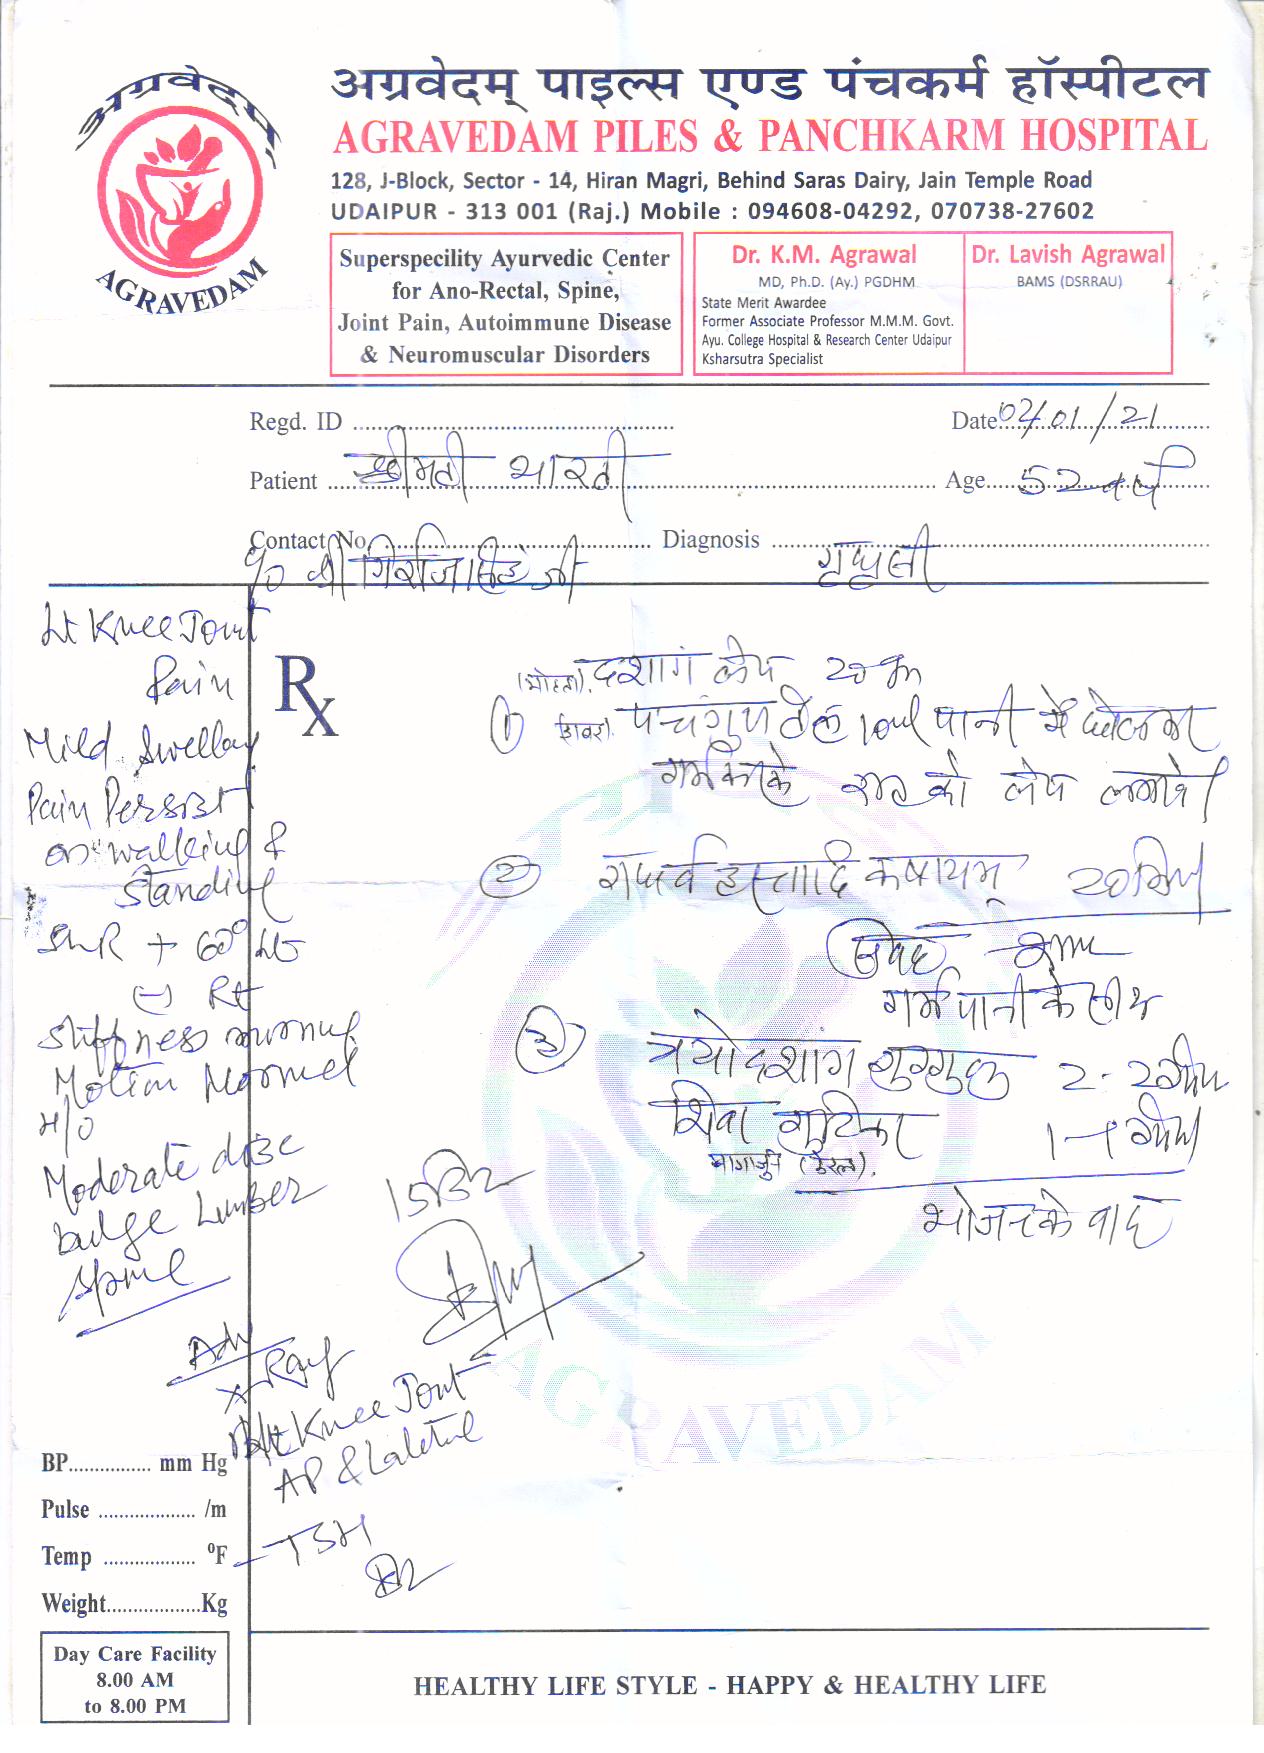 अग्रवेदम्
AGRAVEDAM
अग्रवेदम् पाइल्स एण्ड पंचकर्म हॉस्पीटल
AGRAVEDAM PILES & PANCHKARM HOSPITAL
128, J-Block, Sector - 14, Hiran Magri, Behind Saras Dairy, Jain Temple Road
UDAIPUR - 313 001 (Raj.) Mobile : 094608-04292, 070738-27602
Superspecility Ayurvedic Center
for Ano-Rectal, Spine,
Joint Pain, Autoimmune Disease
& Neuromuscular Disorders
Dr. K.M. Agrawal
MD, Ph.D. (Ay.) PGDHM
State Merit Awardee
Former Associate Professor M.M.M. Govt.
Ayu. College Hospital & Research Center Udaipur
Ksharsutra Specialist
Dr. Lavish Agrawal
BAMS (DSRRAU)
Regd. ID
Date 02/01/21
Patient श्रीमती भारती
Age 52 वर्ष
Contact No.
Diagnosis गृध्रसी
Lt Knee Joint
Pain
Mild Swelling
Pain Persist
on walking &
standing
SLR + 60° Lt
(-) Rt
Stiffness
Motion Normal
H/O
Moderate disc
bulge Lumber
Spine
Rx
दशांग लेप 20 gm
① पंचगुण तेल 10ml पानी में घोलकर
गर्म करके रात को लेप लगावें।
② गंधर्व हस्तादि कषायम् 20 मिली
सुबह शाम
गर्म पानी के साथ
③ त्रयोदशांग गुग्गुलु 2-2 गोली
शिवा गुटिका 1-1 गोली
नागार्जुन (केरल).
भोजन के बाद
15 दिन
Adv
X Ray
Lt Knee Joint
AP & Lateral
- TSH
AGRAVEDAM
BP mm Hg
Pulse /m
Temp ºF
Weight Kg
Day Care Facility
8.00 AM
to 8.00 PM
HEALTHY LIFE STYLE - HAPPY & HEALTHY LIFE